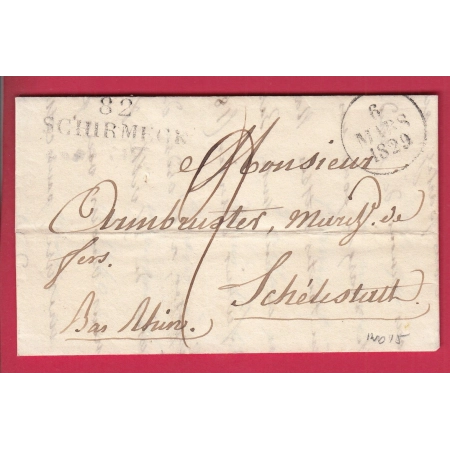 82
SCHIRMECK
6
MARS
1829
Monsieur
Armbruster, March.d de
fers.
Schélestatt.
Bas Rhin.